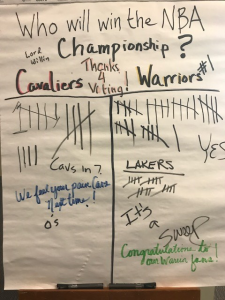 Who will win the NBA
Lord
Willin
Championship?
Thanks
4
Voting!
Cavaliers
Warriors #1
YES
Cavs in 7
We feel your pain Cavs
Next time!
LAKERS
It's
a
Sweep
Congratulations to
our Warrior fans!